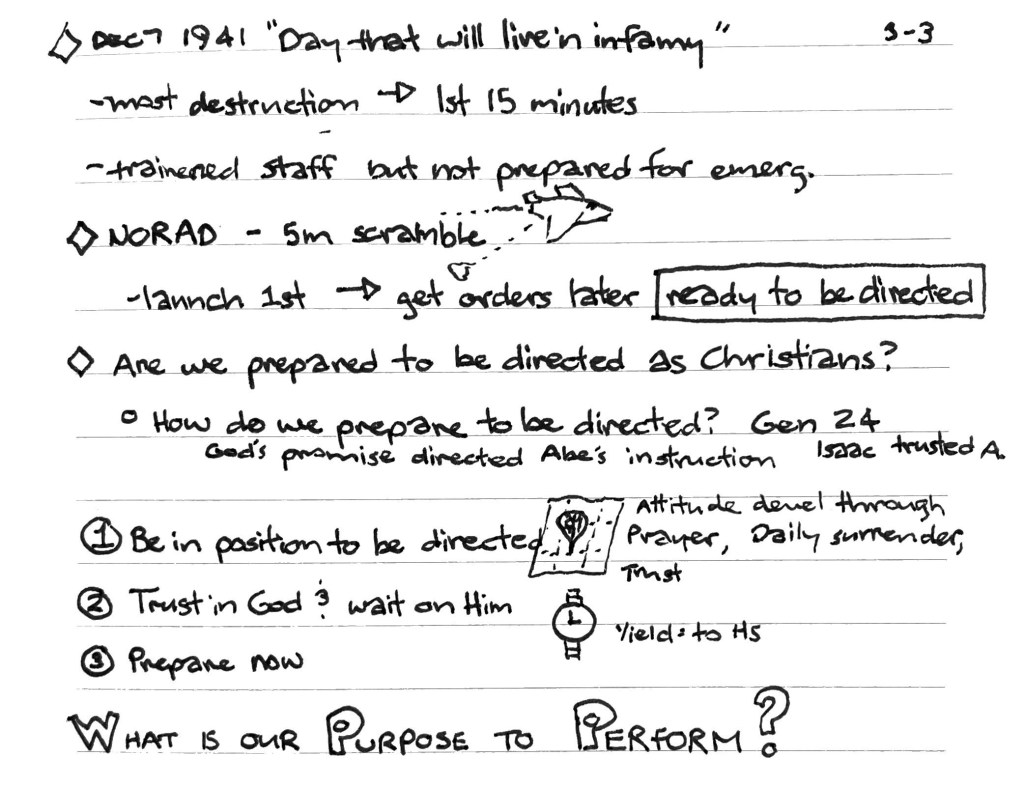 ◇ DEC 7 1941 "Day that will live'n infamy" 3-3
-most destruction → 1st 15 minutes
-trainened staff but not prepared for emerg.
◇ NORAD - 5m scramble
-launch 1st → get orders later ready to be directed
◇ Are we prepared to be directed as Christians?
○ How do we prepare to be directed? Gen 24
God's promise directed Abe's instruction Isaac trusted A.
① Be in position to be directed
Attitude devel through
Prayer, Daily surrender,
Trust
② Trust in God & wait on Him
Yield: to HS
③ Prepare now
WHAT IS OUR PURPOSE TO PERFORM?